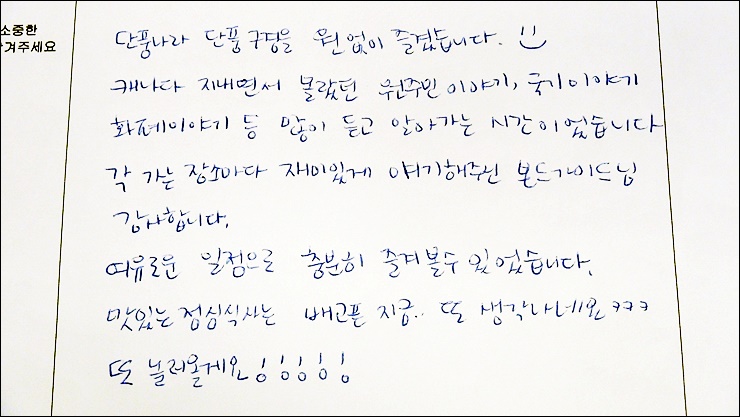 소중한
겨주세요
단풍나라 단풍구경을 원없이 즐겼습니다. :)
캐나다 지내면서 몰랐던 원주민이야기, 국기이야기
화폐이야기 등 많이 듣고 알아가는 시간이었습니다
각 가는 장소마다 재미있게 얘기해주신 본드가이드님
감사합니다.
여유로운 일정으로 충분히 즐겨볼수 있었습니다.
맛있는 점심식사는 배고픈 지금.. 또 생각나네요 ㅋㅋㅋ
또 놀러올게요!!!!!